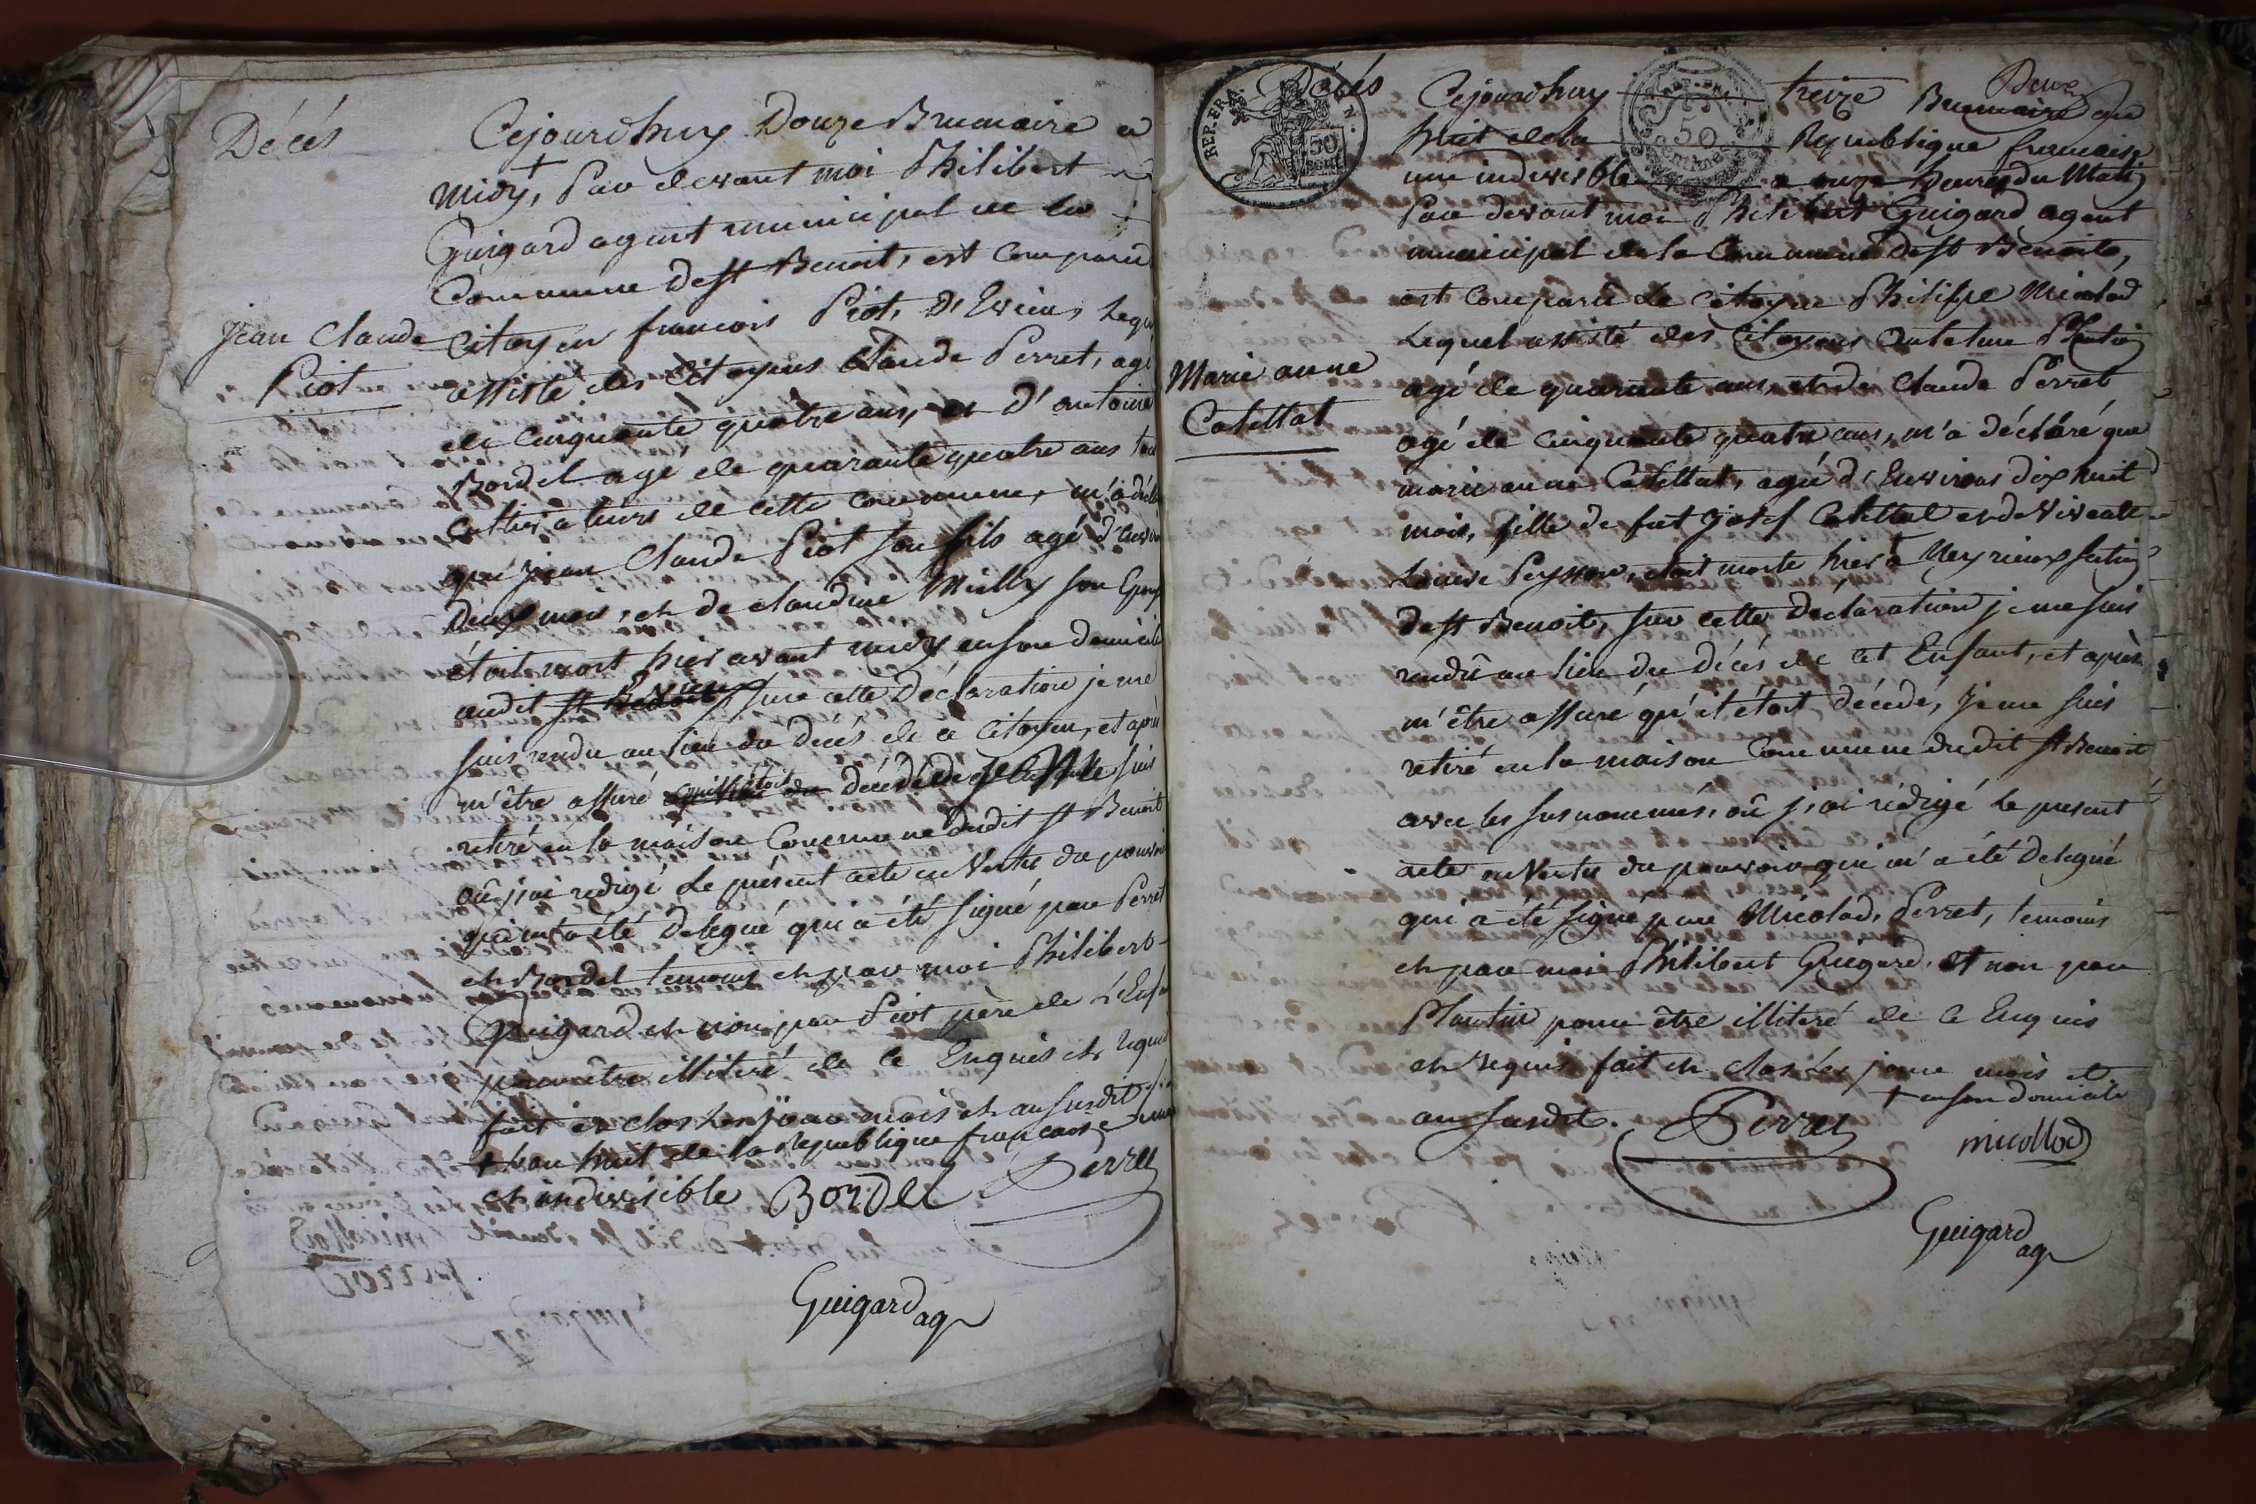 Décés
Cejourdhuy Douze Brumaire a
midy, + Par devant moi Philibert
Guigard agent municipal de la
Commune de St Benoit, est comparu
Jean Claude
Piot
Citoyen francois Piot, D'Evieu, lequ
assisté des Citoyens Claude Perret, agé
de cinquante quatre ans, et d'antoine
Bordel agé de quarante quatre ans tou
cultivateurs de cette commune, m'a décla
que jean Claude Piot son fils agé d'envir
Deux mois, et de claudine Milly son Epous
étoit mort hier avant midy en son domicile
audit St Benoit sur cette Déclaration je me
suis rendu au lieu du décés de ce Citoyen, et après
m'être assuré décédé je me suis
retiré en la maison Commune dudit St Benoit
où j'ai redigé le présent acte en Vertu du pouvoir
qui m'a été Delegué qui a été signé par Perret
et Bordel temoins et par moi Philibert
Guigard et non par Piot père de L'Enfa
pour être illiteré de ce Enquis et requi
fait et clos les jour mois et an susdit
+ l'an huit de la Republique francaise une
et indivisible Bordel Perret
Guigard ag
REP. FRA.
50
cent
50
Centimes
Décés
Deux
Cejourdhuy treize Brumaire an
huit de la Republique francaise
une indivisible a onze heures du Matin
Par devant moi Philibert Guigard agent
municipal de la Commune de St Benoit,
est comparu le citoyen Philippe Micolod
Marie anne
Catettat
Lequel assisté des Citoyens Plantin
agé de quarante ans, et de Claude Perret
agé de cinquante quatre ans, m'a déclaré que
marie anne Catettat, agée d'Environs dix huit
mois, fille de fut josef Catettat et de
Louise Peysson, étoit morte hier +
de St Benoit, sur cette Déclaration je me suis
rendû au lieu du Décés de cet Enfant, et après
m'être assuré qu'il étoit décédé, je me suis
retiré en la maison Commune dudit St Benoit
avec les susnommés, où j'ai rédigé le présent
acte en Vertu du pouvoir qui m'a été Delegué
qui a été signé par Micolod, Perret, temoins
et par moi Philibert Guigard, et non par
Plantin pour être illiteré de ce Enquis
et requis fait et clos Les jour mois et
an susdit. + en son Domicile
Perret
micollod
Guigard
ag